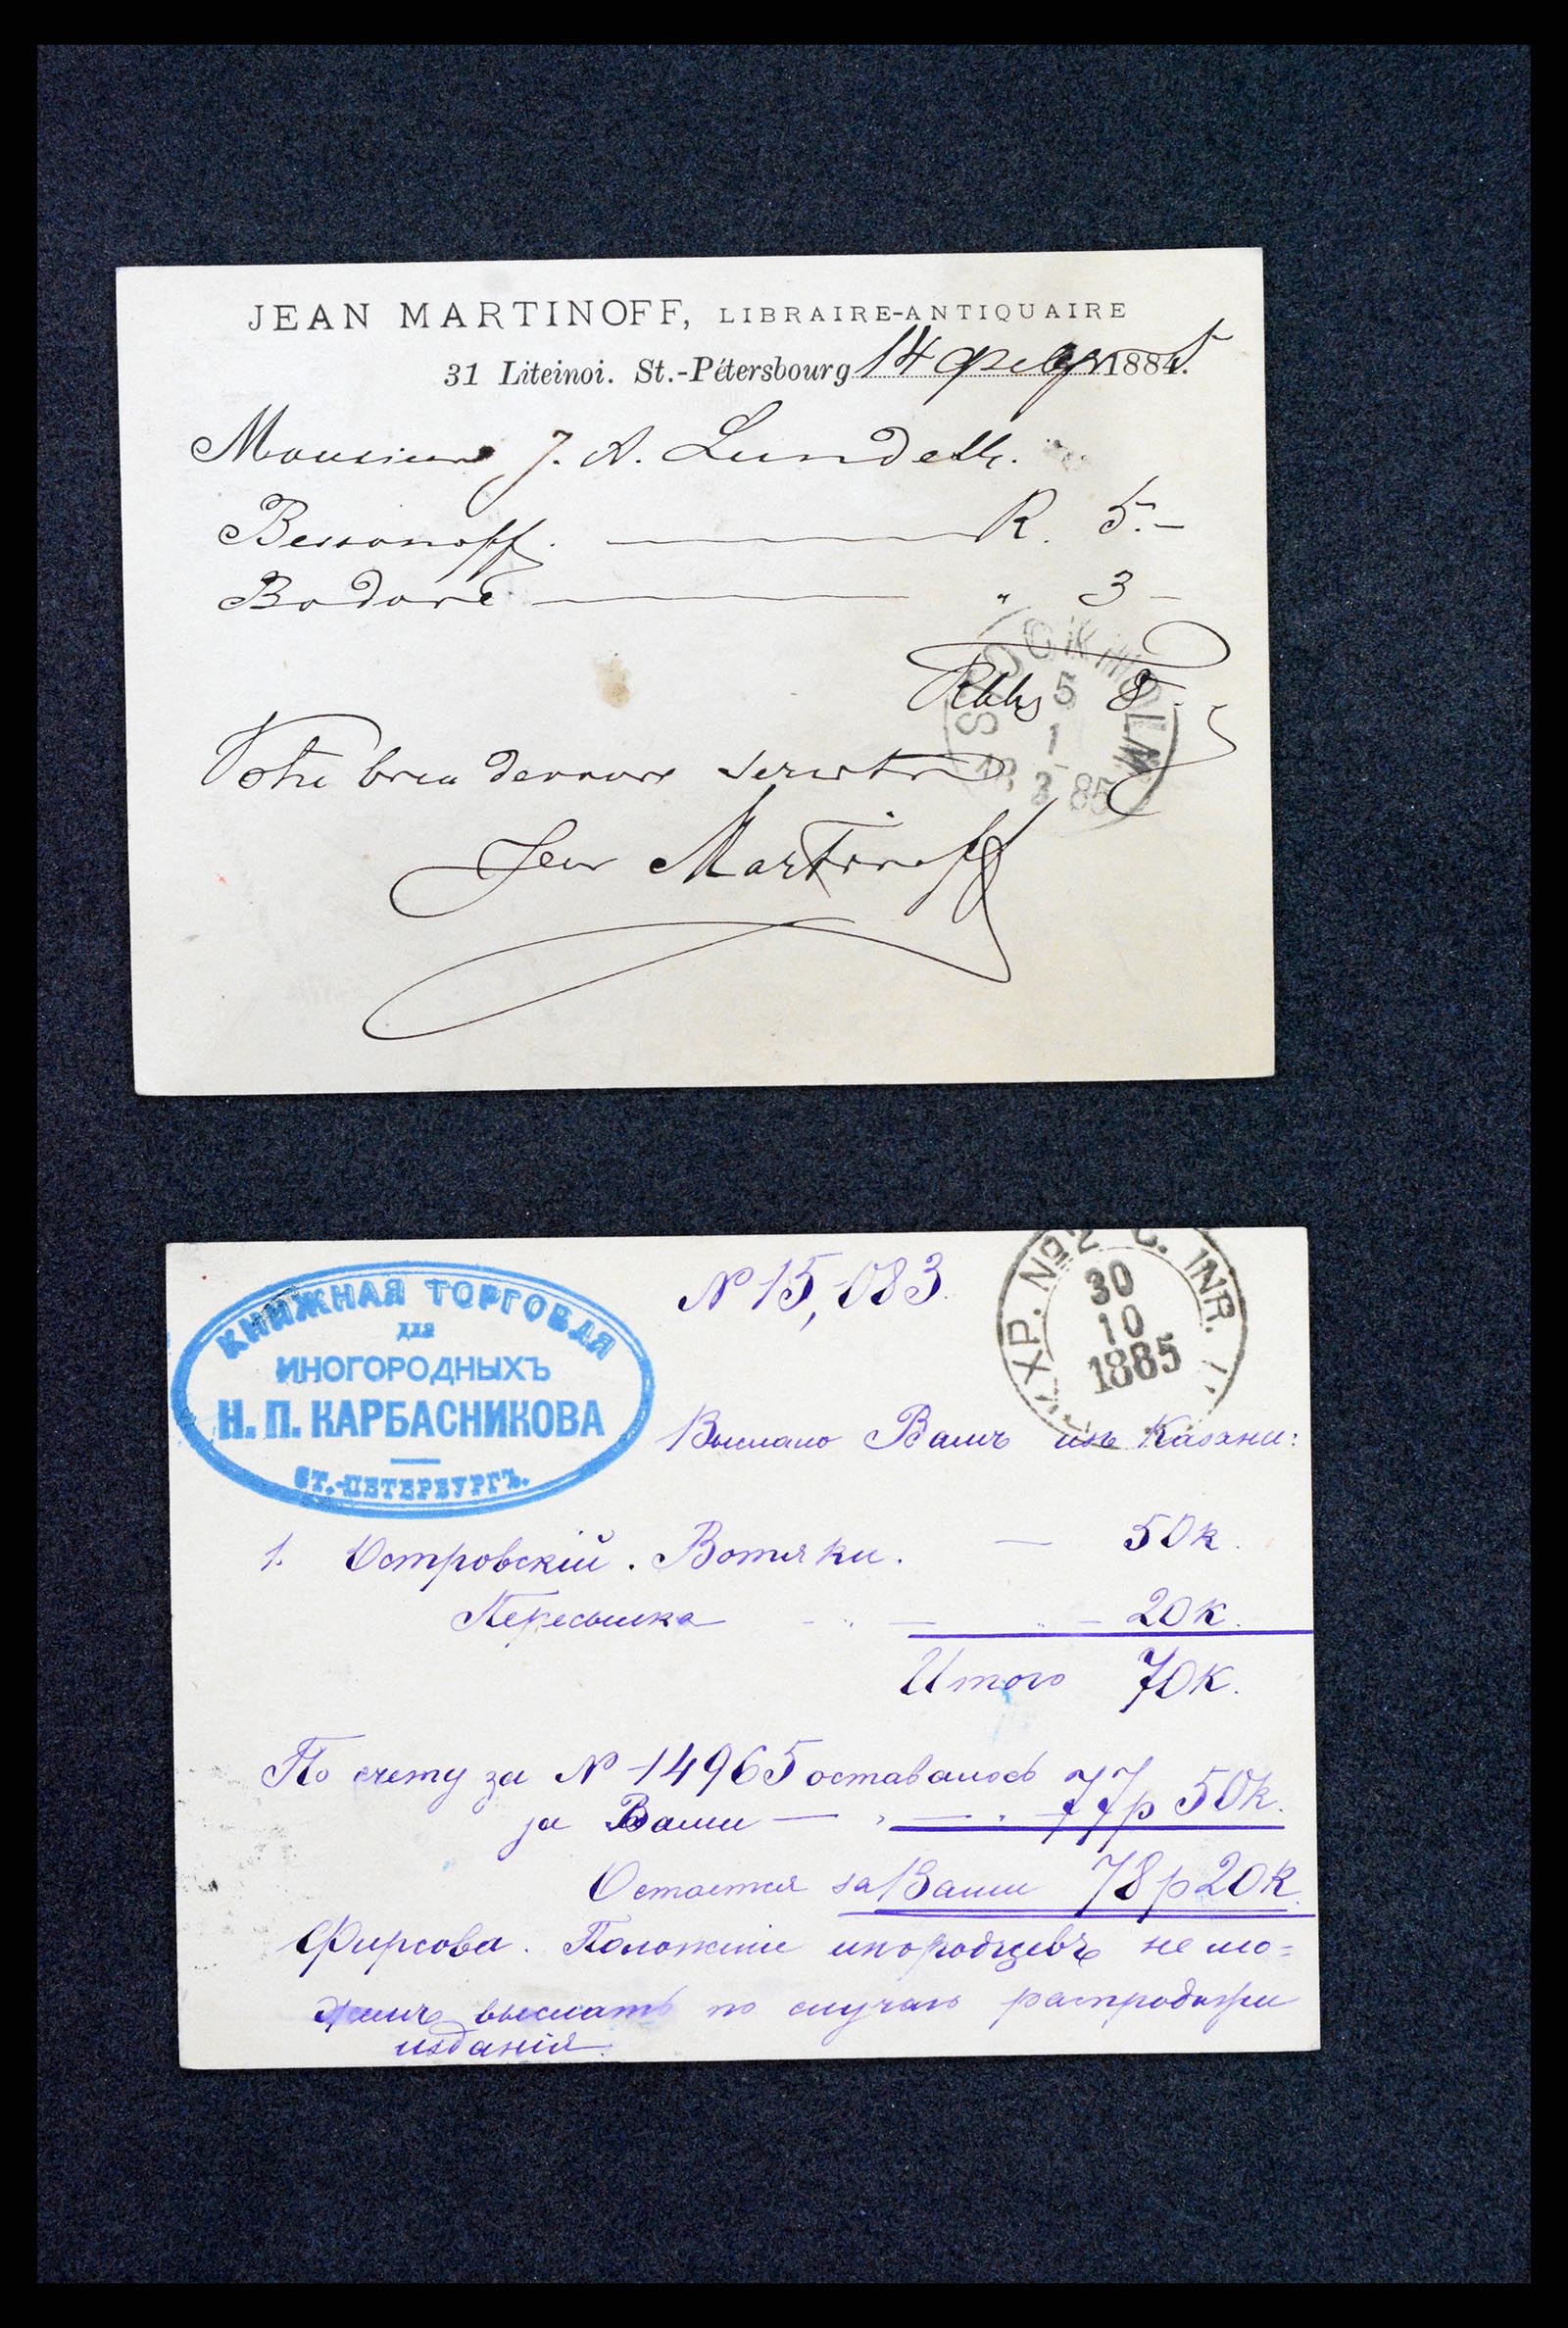 JEAN MARTINOFF, LIBRAIRE-ANTIQUAIRE
31 Liteinoi. St.-Pétersbourg 14 февр 1885.
Monsieur J. A. Lundell.
Bessonoff. R. 5.–
" 3 –
Rbls 8.–
STOCKHOLM
5
1
18 2 85
Votre bien
Jean Martinoff
КНИЖНАЯ ТОРГОВЛЯ
для
ИНОГОРОДНЫХЪ
Н. П. КАРБАСНИКОВА
СТ.-ПЕТЕРБУРГЪ.
№ 15,083.
PKXP. No 2 C. INR. T.
30
10
1885
Выслано Вамъ изъ Казани:
1. Островскій. Вотяки. — 50к.
Пересылка — " — 20к.
Итого 70к.
По счету за № 14965 оставалось
за Вами — " — " 77р 50к.
Остается за Вами 78р 20к.
Фирсова. Положеніе инородцевъ не мо=
жемъ выслать по случаю распродажи
изданія.